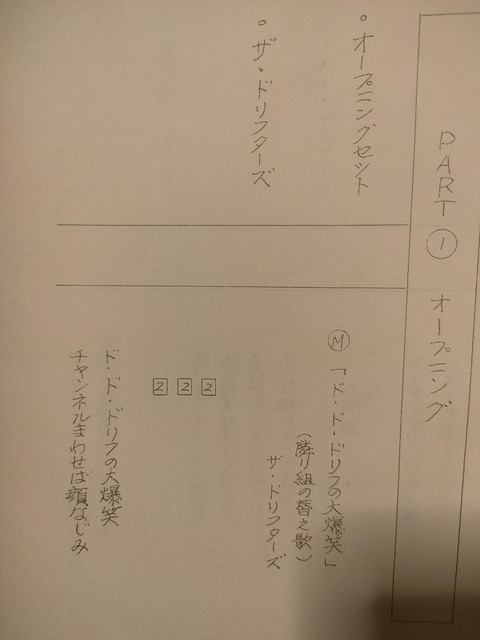 PART① オープニング
。オープニングセット
。ザ・ドリフターズ
Ⓜ「ド・ド・ドリフの大爆笑」
(隣り組の替え歌)
ザ・ドリフターズ
2
2
2
ド・ド・ドリフの大爆笑
チャンネルまわせば顔なじみ